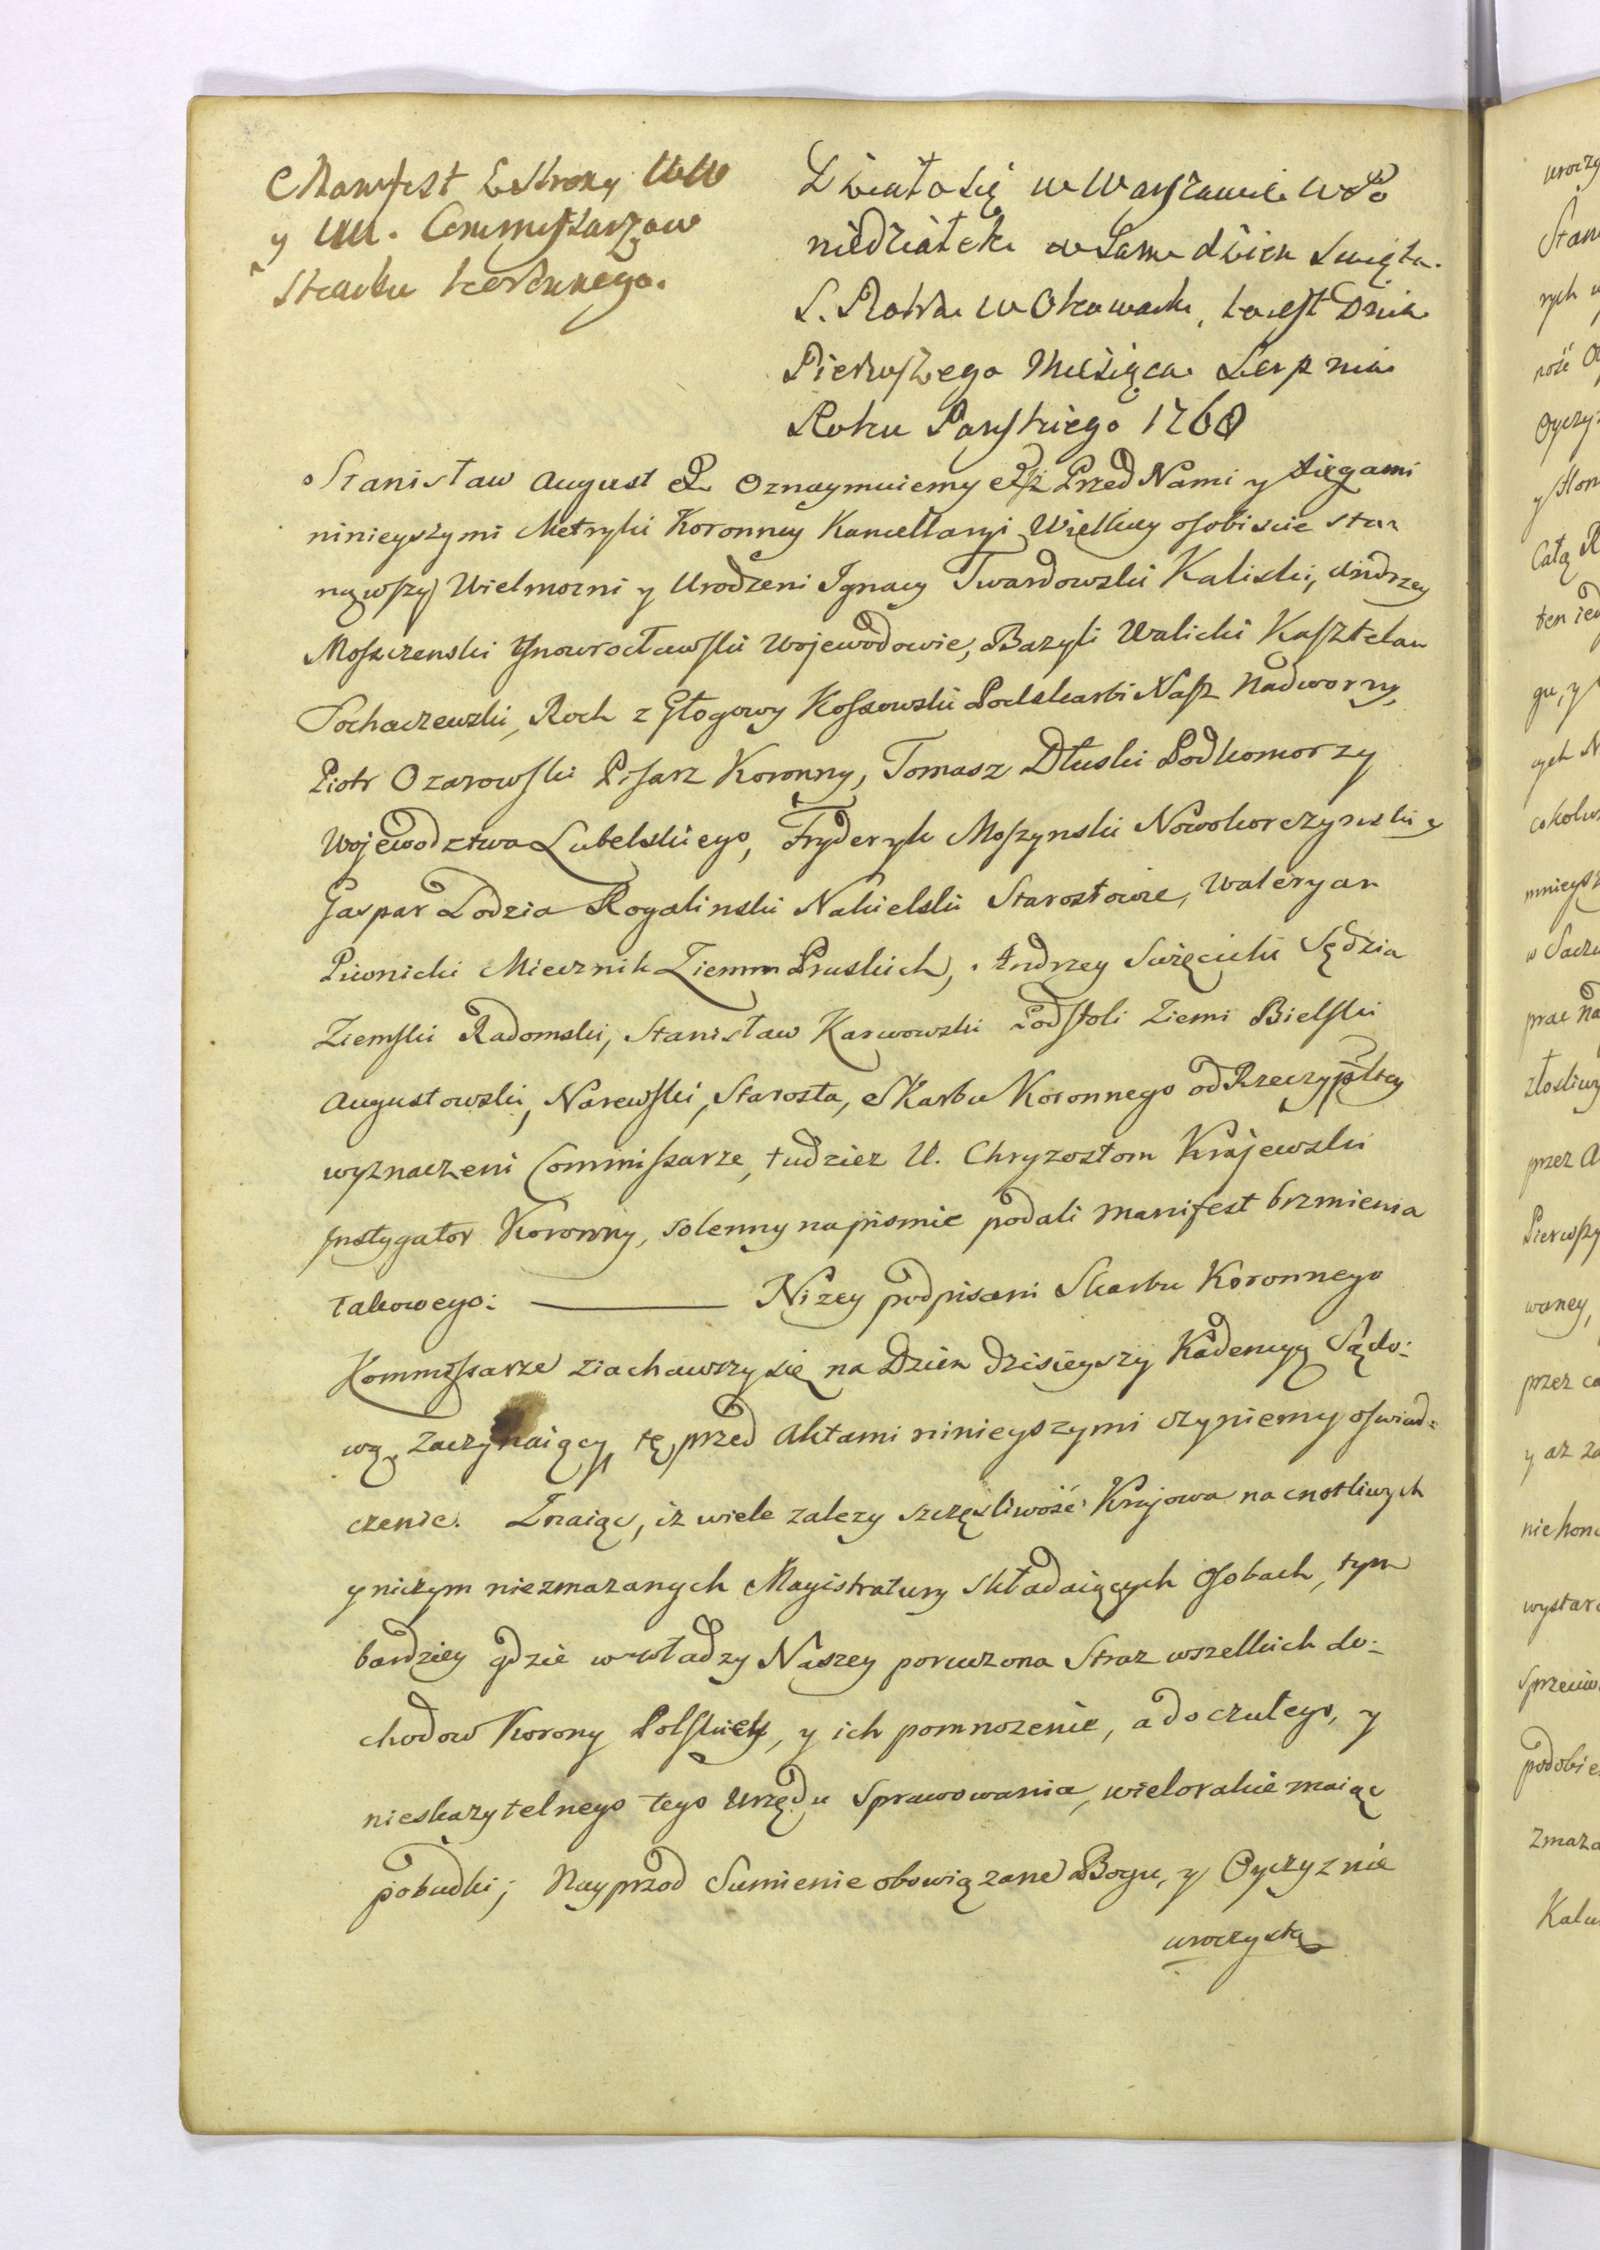 Manifest z strony WW
y UU. Commissarzow
Skarbu koronnego.
Działo się w Warszawie w Po
niedziałek w Sam dzien Swięta
S. Piotra w Okowach, to iest Dnia
Pierwszego Miesiąca Sierpnia
Roku Panskiego 1768
Stanisław August Oznaymuiemy Iż Przed Nami y Xięgami
ninieyszymi Metryki Koronney Kancellaryi Wielkiey osobiscie sta-
nąwszy Wielmozni y Urodzeni Ignacy Twardowski Kaliski, Andrzey
Moszczenski Ynowrocławski Wojewodowie, Bazyli Walicki Kasztelan
Sochaczewski, Roch z Głogowy Kossowski Podskarbi Nasz Nadworny,
Piotr Ozarowski Pisarz Koronny, Tomasz Dłuski Podkomorzy
Wojewodztwa Lubelskiego, Fryderyk Moszynski Nowokorczynski y
Gaspar Lodzia Rogalinski Nakielski Starostowie, Waleryan
Piwnicki Miecznik Ziemm Pruskich, Andrzey Swięcicki Sędzia
Ziemski Radomski, Stanisław Karwowski Podstoli Ziemi Bielski
Augustowski, Narewski, Starosta, Skarbu Koronnego od Rzeczypltey
wyznaczeni Commissarze, tudziez U. Chryzostom Krajewski
Instygator Koronny, solenny na pismie podali manifest brzmienia
takowego: Nizey podpisani Skarbu Koronnego
Kommissarze ziachawszy się na Dzien dzisieyszy Kadencyą Sądo:
wą Zaczynaiący, tę przed Aktami ninieyszymi czyniemy oswiad:
czenie. Znaiąc, iz wiele zalezy szczęsliwość Krajowa na cnotliwych
y niczym niezmazanych Magistratury składaiących Osobach, tym
bardziey gdzie w władzy Naszey poruczona Straz wszelkich do:
chodow Korony Polskiey, y ich pomnozenie, a do czułego, y
nieskazytelnego tego Urzędu Sprawowania, wielorakie maiąc
pobudki; Nayprzod Sumienie obowiązane Bogu, y Oyczyznie
uroczystą